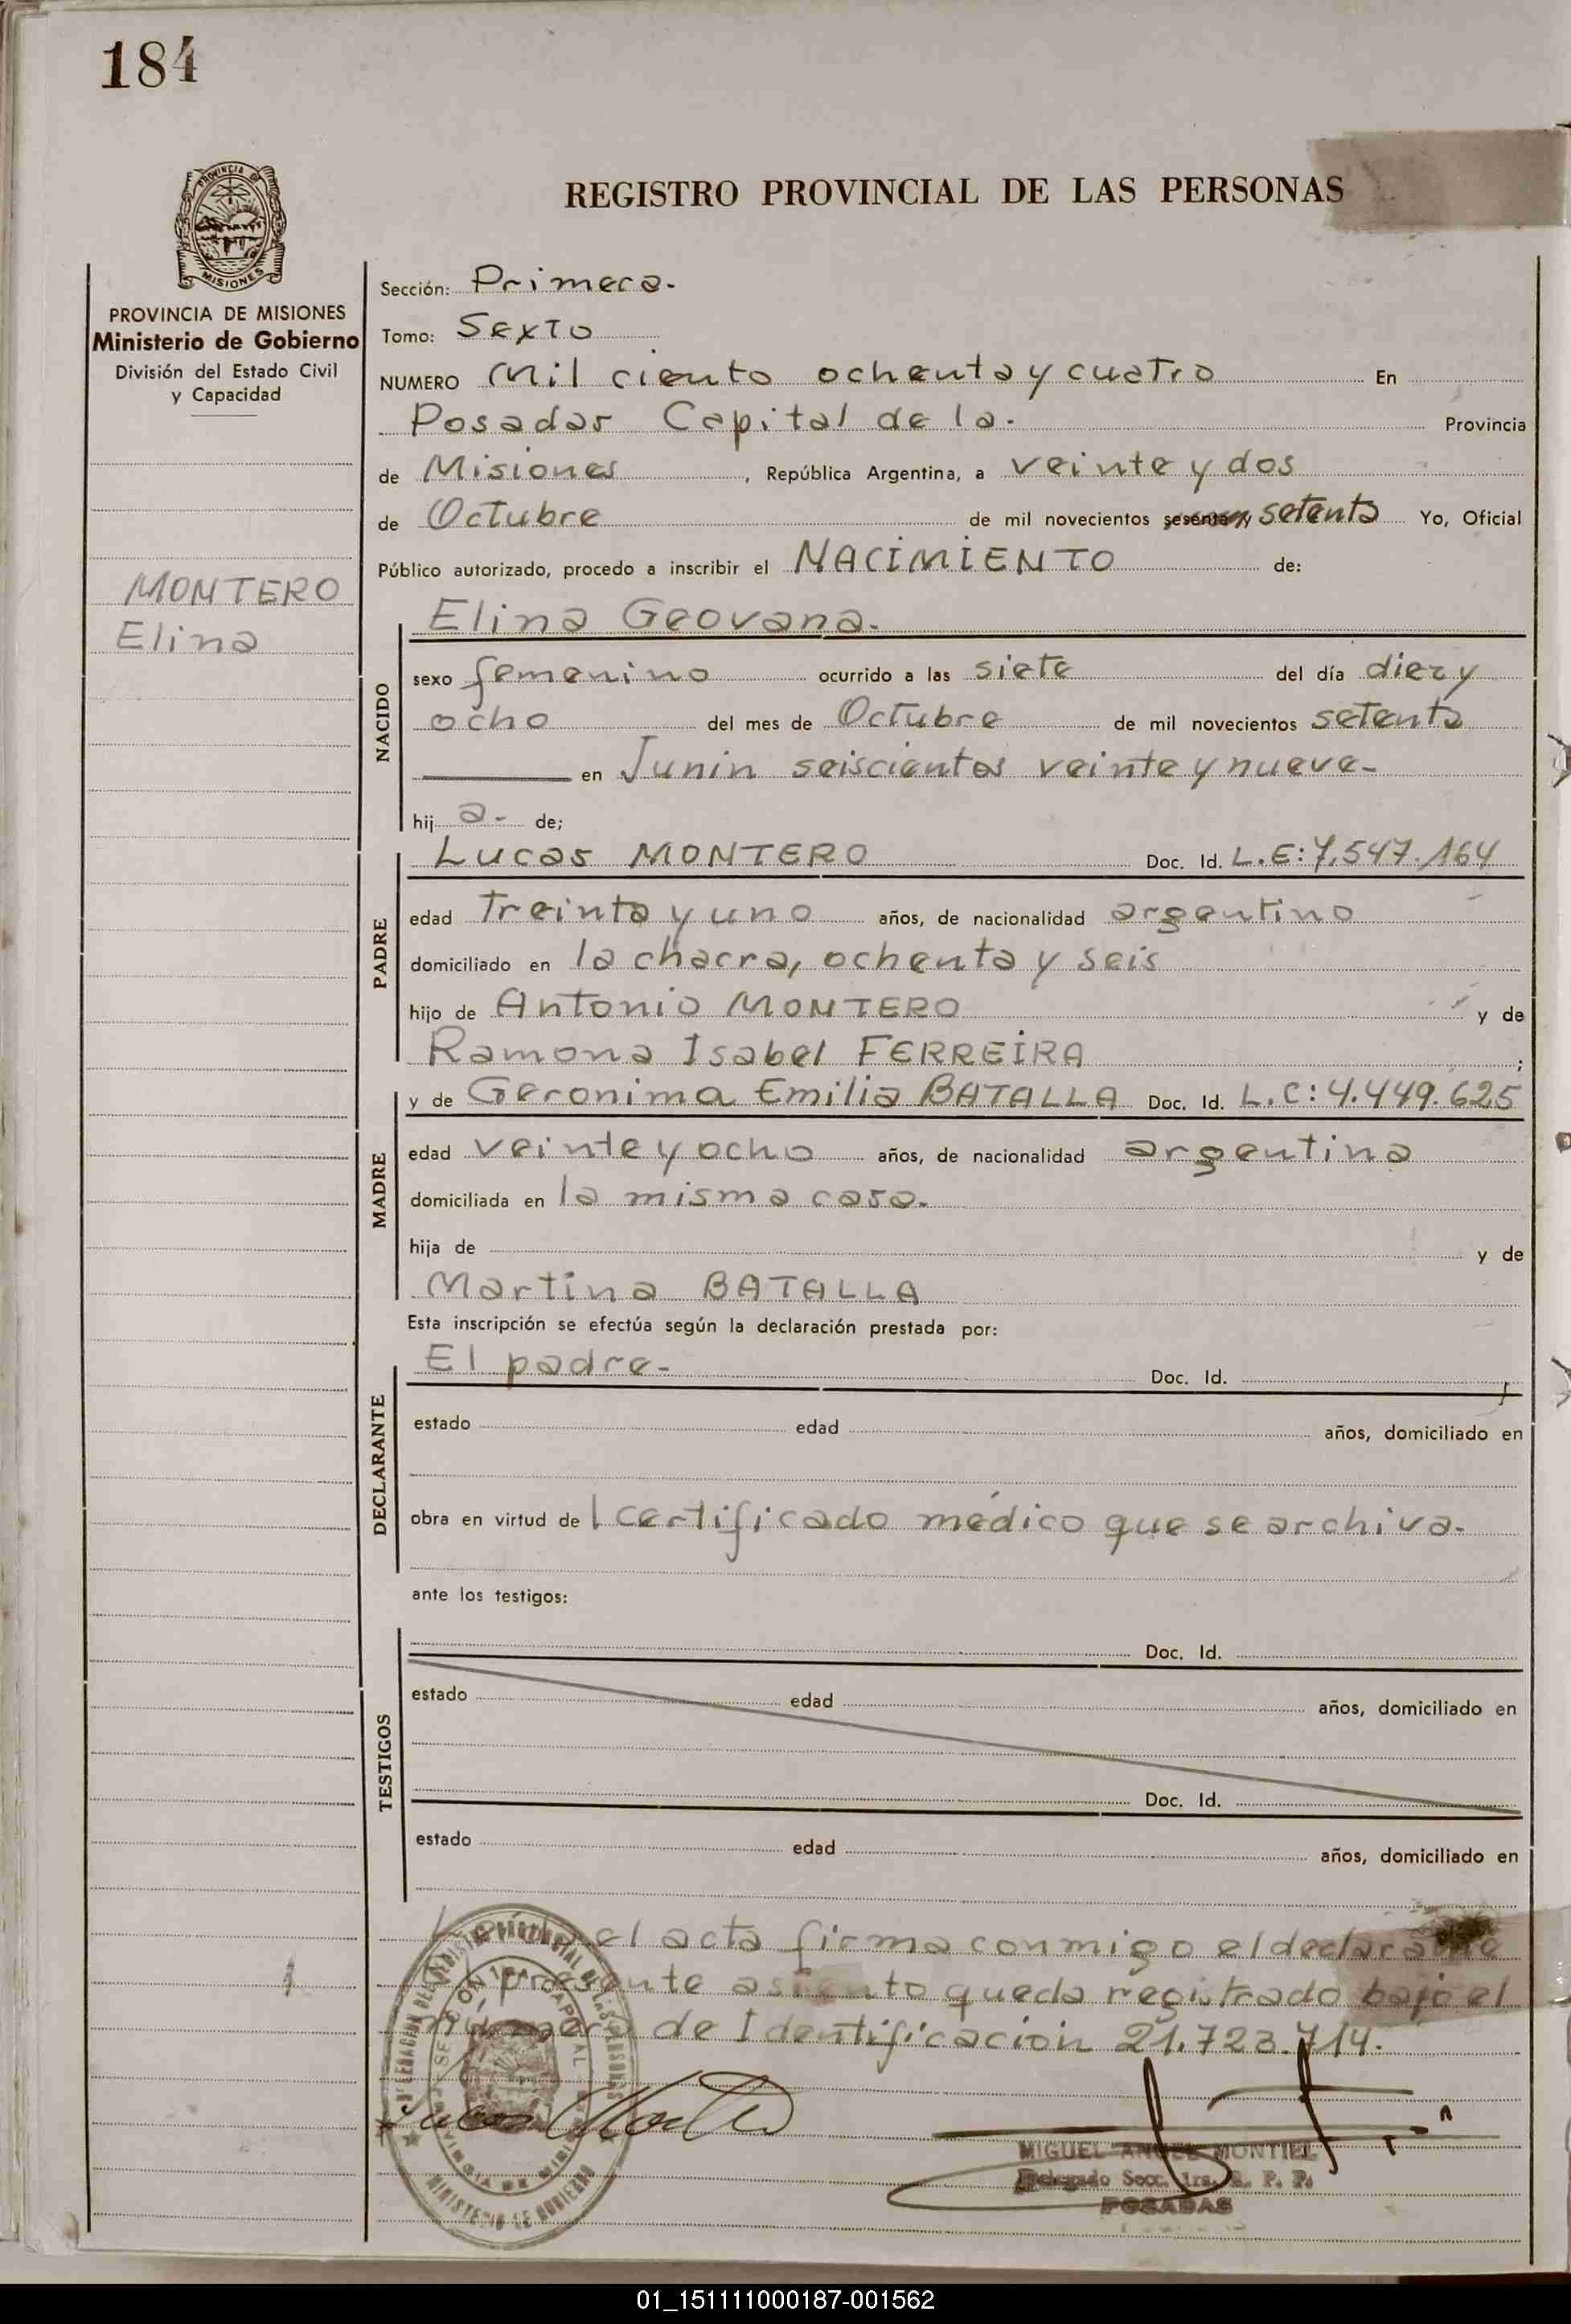 184
PROVINCIA DE
MISIONES
REGISTRO PROVINCIAL DE LAS PERSONAS
PROVINCIA DE MISIONES
Ministerio de Gobierno
División del Estado Civil
y Capacidad
MONTERO
Elina
Sección: Primera.
Tomo: Sexto
NUMERO Mil ciento ochenta y cuatro En
Posadas Capital de la. Provincia
de Misiones, República Argentina, a veinte y dos
de Octubre de mil novecientos sesenta y setenta Yo, Oficial
Público autorizado, procedo a inscribir el NACIMIENTO de:
Elina Geovana.
NACIDO
sexo femenino ocurrido a las siete del día diez y
ocho del mes de Octubre de mil novecientos setenta
en Junin seiscientos veinte y nueve-
hij a- de;
PADRE
Lucas MONTERO Doc. Id. L.E: 7.547.164
edad Treinta y uno años, de nacionalidad argentino
domiciliado en la chacra, ochenta y seis
hijo de Antonio MONTERO y de
Ramona Isabel FERREIRA ;
MADRE
y de Geronima Emilia BATALLA Doc. Id. L.C: 4.449.625
edad veinte y ocho años, de nacionalidad argentina
domiciliada en la misma casa.
hija de y de
Martina BATALLA
Esta inscripción se efectúa según la declaración prestada por:
DECLARANTE
El padre- Doc. Id.
estado edad años, domiciliado en
obra en virtud de l certificado médico que se archiva.
ante los testigos:
TESTIGOS
Doc. Id.
estado edad años, domiciliado en
Doc. Id.
estado edad años, domiciliado en
el acta firma conmigo el declarante
presente asiento queda registrado bajo el
número de Identificación 21.723.714.
Lucas Montero
MIGUEL ANGEL MONTIEL
Delegado Secc. 1ra. R. P. P.
POSADAS
MINISTERIO DE GOBIERNO
01_151111000187-001562